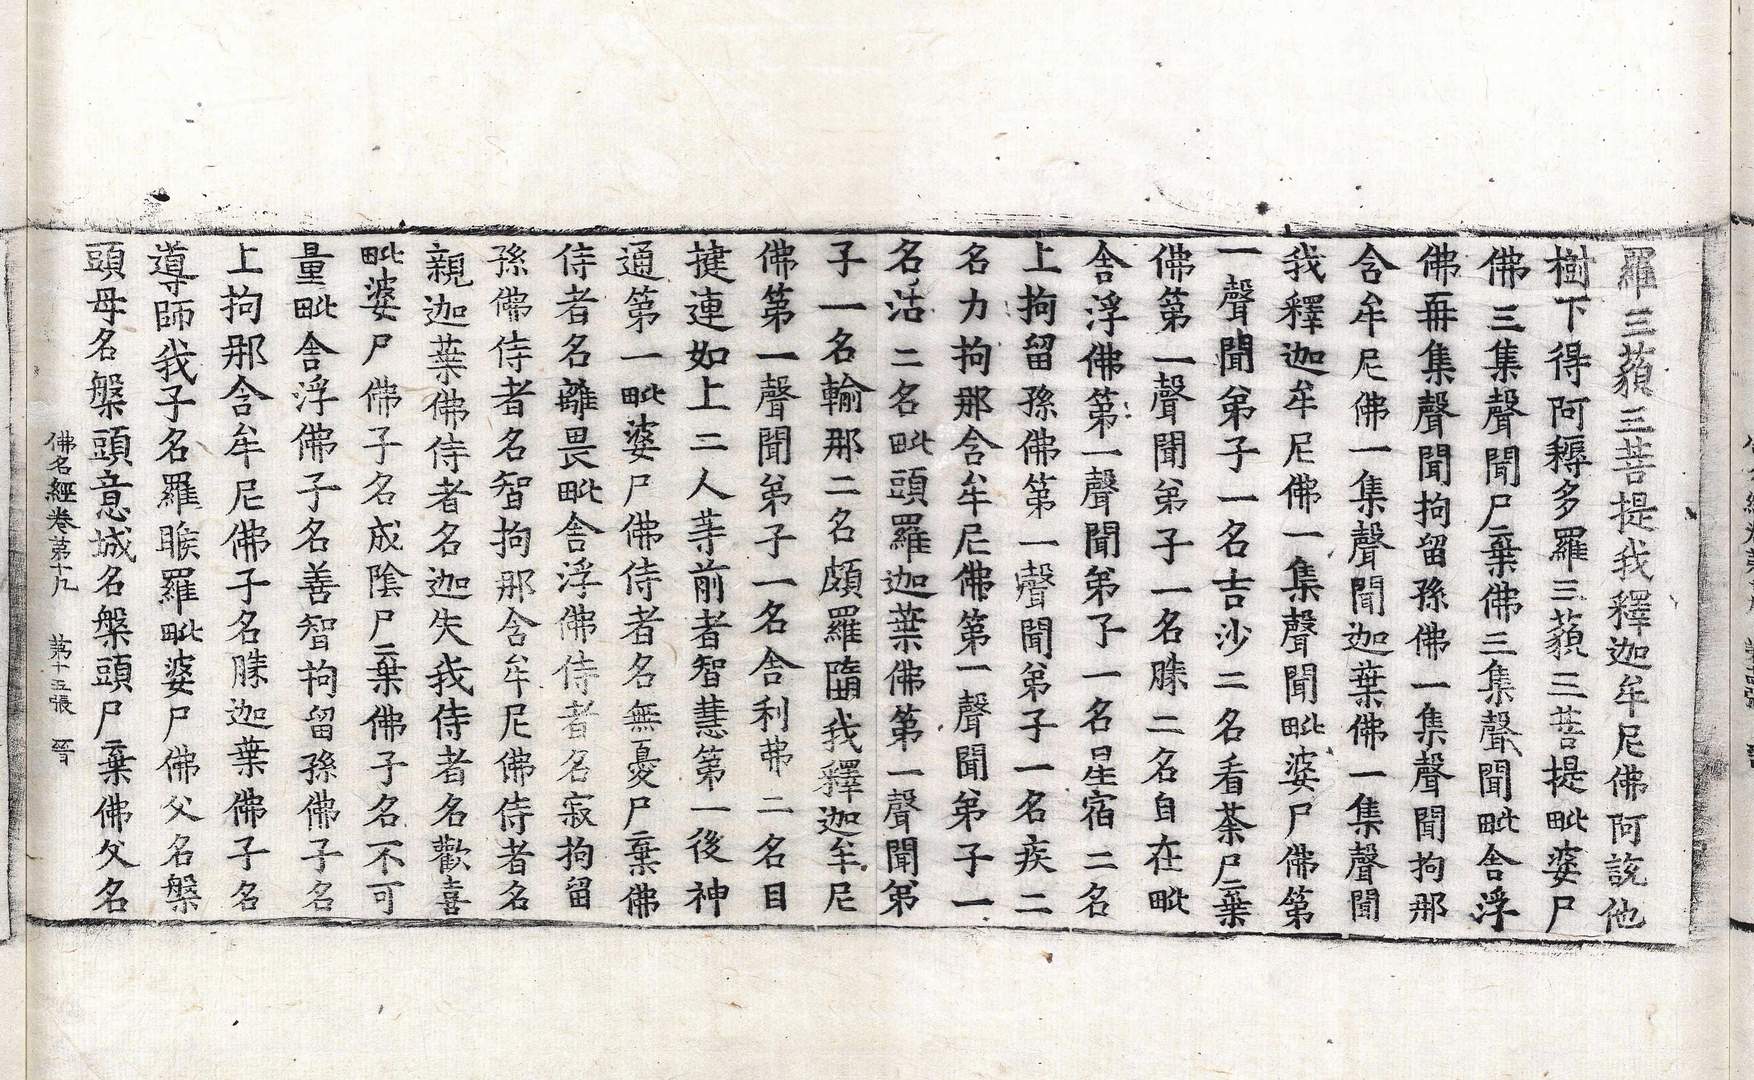 羅三藐三菩提我釋迦牟尼佛阿說他
樹下得阿耨多羅三藐三菩提毗婆尸
佛三集聲聞尸棄佛三集聲聞毗舍浮
佛再集聲聞拘留孫佛一集聲聞拘那
含牟尼佛一集聲聞迦葉佛一集聲聞
我釋迦牟尼佛一集聲聞毗婆尸佛第
一聲聞弟子一名吉沙二名看荼尸棄
佛第一聲聞弟子一名勝二名自在毗
舍浮佛第一聲聞弟子一名星宿二名
上拘留孫佛第一聲聞弟子一名疾二
名力拘那含牟尼佛第一聲聞弟子一
名活二名毗頭羅迦葉佛第一聲聞弟
子一名輸那二名頗羅墮我釋迦牟尼
佛第一聲聞弟子一名舍利弗二名目
揵連如上二人等前者智慧第一後神
通第一毗婆尸佛侍者名無憂尸棄佛
侍者名離畏毗舍浮佛侍者名寂拘留
孫佛侍者名智拘那含牟尼佛侍者名
親迦葉佛侍者名迦失我侍者名歡喜
毗婆尸佛子名成陰尸棄佛子名不可
量毗舍浮佛子名善智拘留孫佛子名
上拘那含牟尼佛子名勝迦葉佛子名
導師我子名羅睺羅毗婆尸佛父名槃
頭母名槃頭意城名槃頭尸棄佛父名
佛名經卷第十九 第十五張 晉